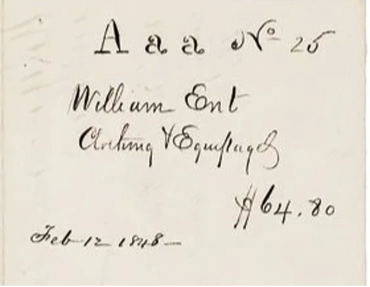 A a a No 25
William Ent
Clothing & Equipage
$64.80
Feb 12 1848